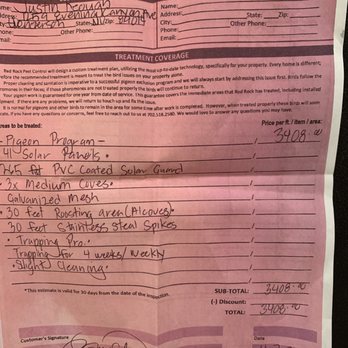 Name: Justin Keough
Name:
Address:
Address:
Henderson State: Zip: 89015
State: Zip:
Phone: Other Phone:
Other Phone:
Email:
Email:
TREATMENT COVERAGE
Red Rock Pest Control will design a custom treatment plan, utilizing the most up-to-date technology, specifically for your property. Every home is different;
before the recommended treatment is meant to treat the bird issues on your property alone.
Proper cleaning and sanitation is imperative to a successful pigeon exclusion program and we will always start by addressing this issue first. Birds follow the
in their feces; if those are not treated properly the birds will continue to return.
Your pigeon work is guaranteed for one year from date of service. This guarantee covers the immediate areas that Red Rock has treated, including installed
equipment. If there are any problems, we will return to touch up and fix the issue.
It is normal for pigeons and other birds to remain in the area for some time after work is completed. However, when treated properly these birds will soon
If you have any questions or concerns, feel free to reach out to us at 702.518.2580. We would love to answer any questions you may have!
areas to be treated: Price per ft / item / area:
- Pigeon Program - 3408.00
- 41 Solar Panels.
ft PVC Coated Solar Guard
- 3x Medium Coves.
Galvanized Mesh
• 30 feet Roosting area (Alcoves)
30 feet Stainless Steal Spikes
• Trapping Pro.
Trapping for 4 weeks/Weekly
• Slight Cleaning.
SUB-TOTAL: 3408.00
*This estimate is valid for 30 days from the date of the inspection. (-) Discount:
TOTAL: 3408.00
Customer's Signature Date